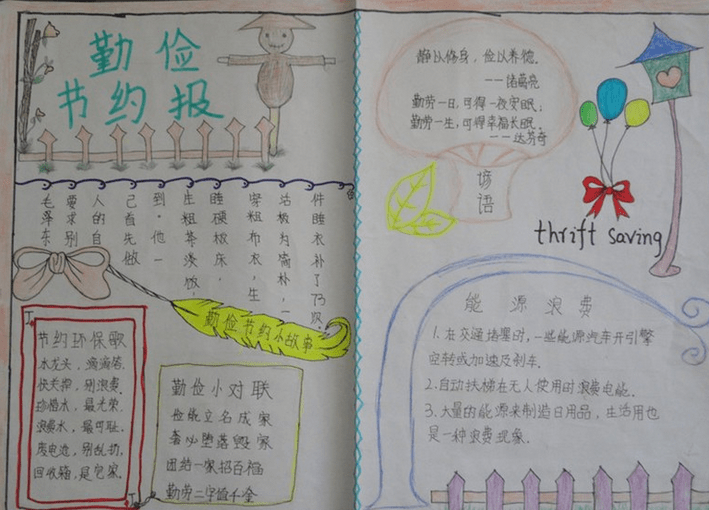 勤俭
节约报
毛泽东
要求别
人的自
己首先做
到。他一
生粗茶淡饭,
睡硬板床,
穿粗布衣,生
活极为简朴,一
件睡衣补了73次.
勤俭节约小故事
节约环保歌
水龙头,滴滴答.
快关掉,别浪费.
珍惜水,最光荣.
浪费水,最可耻.
废电池,别乱扔.
回收箱,是它家.
勤俭小对联
俭能立名成家
奢必堕落毁家
团结一家招百福
勤劳二字值千金
静以修身,俭以养德.
——诸葛亮
勤劳一日,可得一夜安眠;
勤劳一生,可得幸福长眠.
——达芬奇
谚语
thrift saving
能源浪费
1.在交通堵塞时,一些能源汽车开引擎
空转或加速及刹车.
2.自动扶梯在无人使用时浪费电能.
3.大量的能源来制造日用品,生活用也
是一种浪费现象.